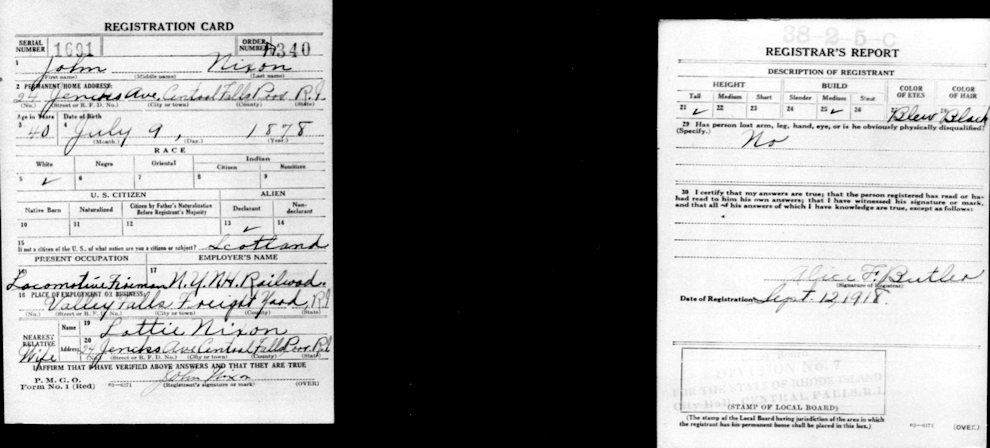 REGISTRATION CARD
SERIAL NUMBER 1691 ORDER NUMBER 340
1 John Nixon
(First name) (Middle name) (Last name)
2 PERMANENT HOME ADDRESS:
24 Jencks Ave. Central Falls Prov. R.I.
(No.) (Street or R. F. D. No.) (City or town) (County) (State)
Age in Years Date of Birth
3 40 4 July 9, 1878
(Month.) (Day.) (Year.)
RACE
White Negro Oriental Indian
Citizen Noncitizen
5 ✓ 6 7 8 9
U. S. CITIZEN ALIEN
Native Born Naturalized Citizen by Father's Naturalization Before Registrant's Majority Declarant Non-declarant
10 11 12 13 ✓ 14
15
If not a citizen of the U. S., of what nation are you a citizen or subject? Scotland
PRESENT OCCUPATION EMPLOYER'S NAME
16 17
Locomotive Fireman N.Y.N.H. Railroad.
PLACE OF EMPLOYMENT OR BUSINESS:
Valley Falls Freight Yard, R.I.
(No.) (Street or R. F. D. No.) (City or town) (County) (State)
NEAREST RELATIVE Name 19 Lottie Nixon
Wife Address 20 24 Jencks Ave Central Falls Prov. R.I.
(No.) (Street or R. F. D. No.) (City or town) (County) (State)
I AFFIRM THAT I HAVE VERIFIED ABOVE ANSWERS AND THAT THEY ARE TRUE
P. M. G. O.
Form No. 1 (Red) 03—6171 John Nixon
(Registrant's signature or mark) (OVER)
38-2-5-C
REGISTRAR'S REPORT
DESCRIPTION OF REGISTRANT
HEIGHT BUILD COLOR OF EYES COLOR OF HAIR
Tall Medium Short Slender Medium Stout
21 ✓ 22 23 24 25 ✓ 26 27 Blew 28 Black
29 Has person lost arm, leg, hand, eye, or is he obviously physically disqualified?
(Specify.) No
30 I certify that my answers are true; that the person registered has read or has
had read to him his own answers; that I have witnessed his signature or mark,
and that all of his answers of which I have knowledge are true, except as follows:
Alice F. Butler
(Signature of Registrar)
Date of Registration Sept. 12, 1918.
DIVISION No. 7
FOR THE STATE OF RHODE ISLAND
City Hall, CENTRAL FALLS, R.I.
(STAMP OF LOCAL BOARD)
(The stamp of the Local Board having jurisdiction of the area in which
the registrant has his permanent home shall be placed in this box.)
03—6171 (OVER)